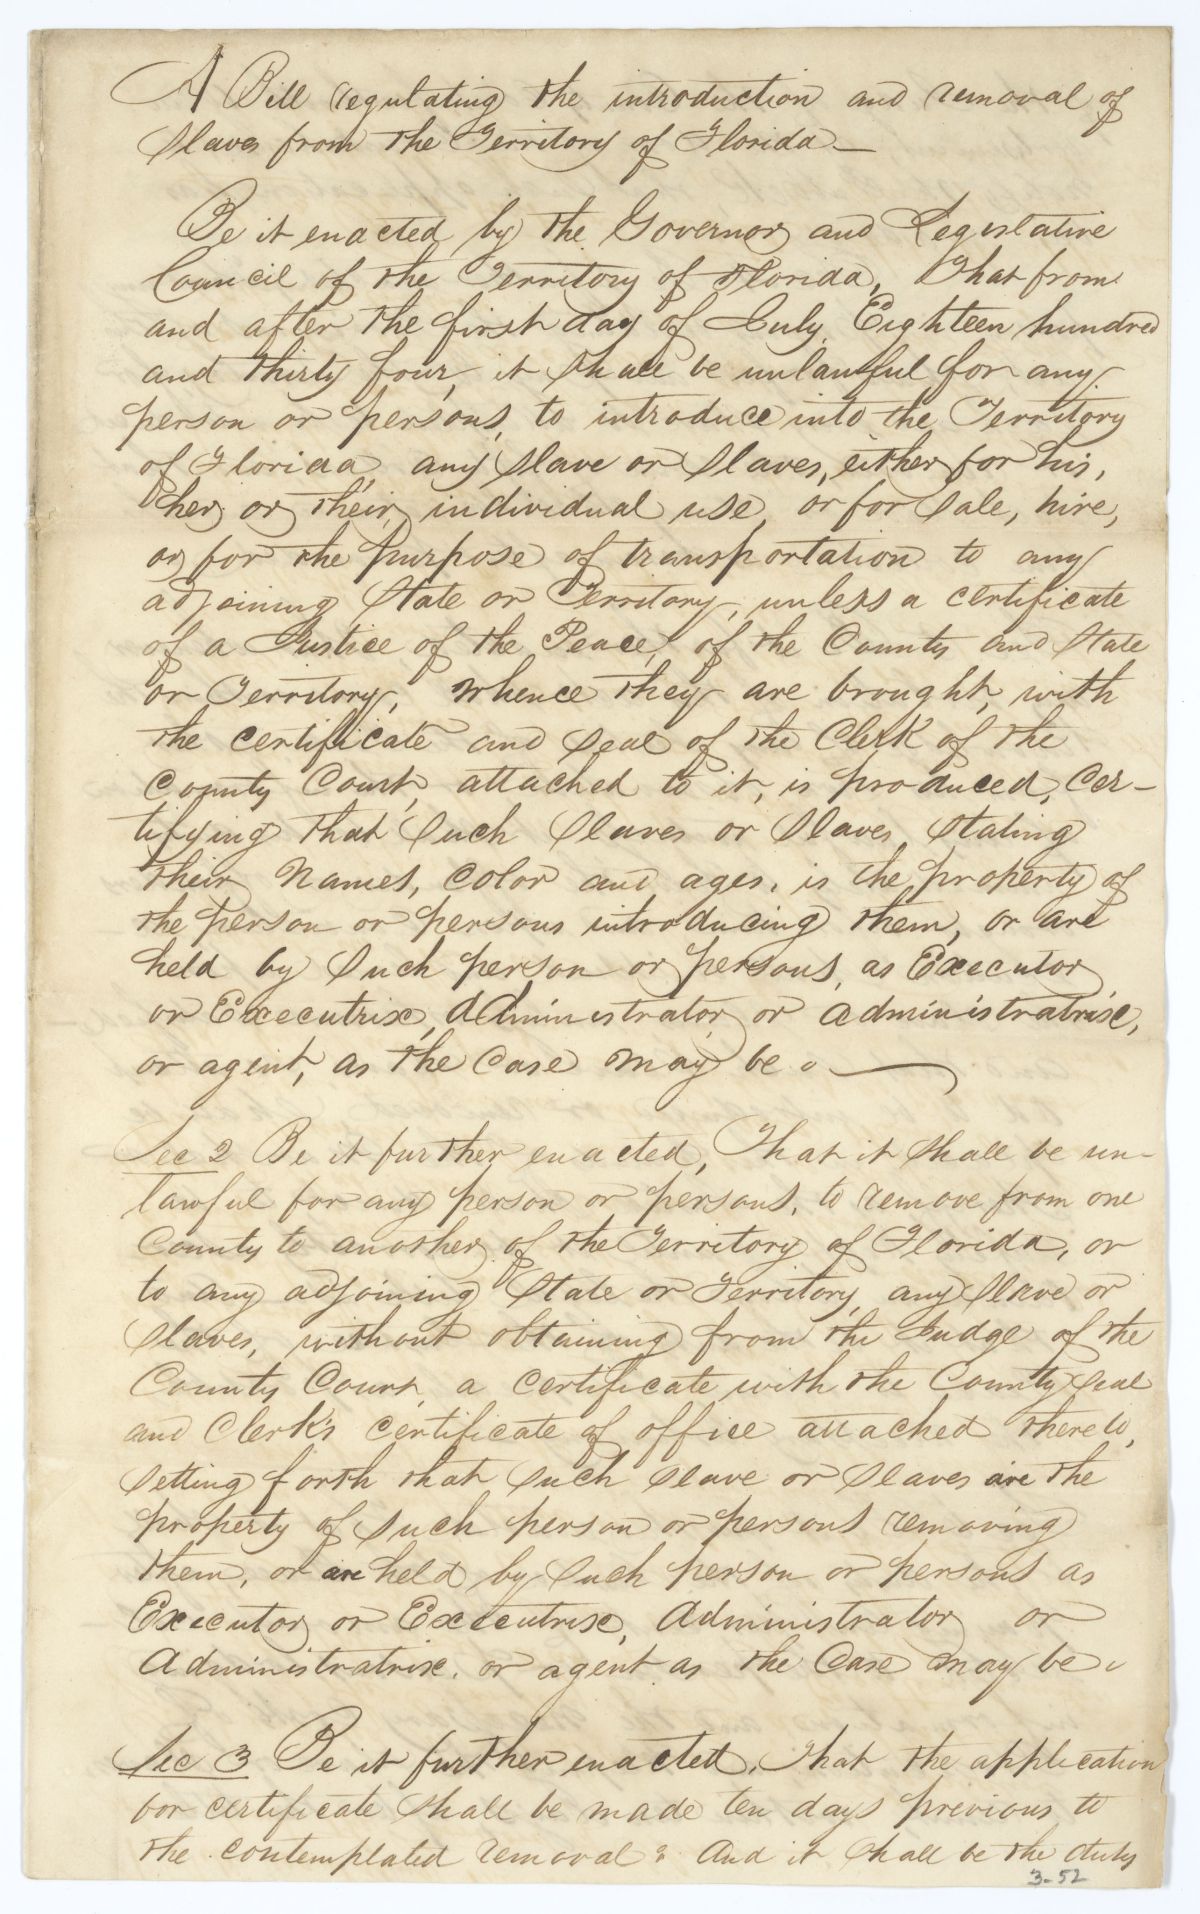 A Bill regulating the introduction and removal of
Slaves from the Territory of Florida —
Be it enacted by the Governor and Legislative
Council of the Territory of Florida, That from
and after the first day of July, Eighteen hundred
and thirty four, it shall be unlawful for any
person or persons, to introduce into the Territory
of Florida, any slave or slaves, either for his,
her or their, individual use, or for sale, hire,
or for the purpose of transportation to any
adjoining State or Territory, unless a certificate
of a Justice of the Peace, of the County and State
or Territory, whence they are brought, with
the certificate and seal of the Clerk of the
County Court, attached to it, is produced, cer-
tifying that such slaves or slaves, stating
their names, color and ages, is the property of
the person or persons introducing them, or are
held by such person or persons, as Executor
or Executrix, Administrator or administratrix,
or agent, as the case may be.
Sec 2 Be it further enacted, That it shall be un-
lawful for any person or persons, to remove from one
County to another, of the Territory of Florida, or
to any adjoining State or Territory, any slave or
slaves, without obtaining from the Judge of the
County Court, a certificate with the County Seal
and Clerk's certificate of office attached thereto,
setting forth that such slave or slaves are the
property of such person or persons removing
them, or are held by such person or persons as
Executor or Executrix, Administrator or
Administratrix, or agent as the case may be.
Sec 3 Be it further enacted, That the application
for certificate shall be made ten days previous to
the contemplated removal: And it shall be the duty
3-52